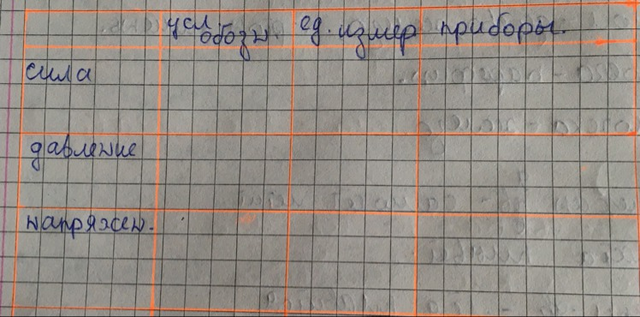 усл. обозн. ед. измер приборы.
сила
давление
напряжен.